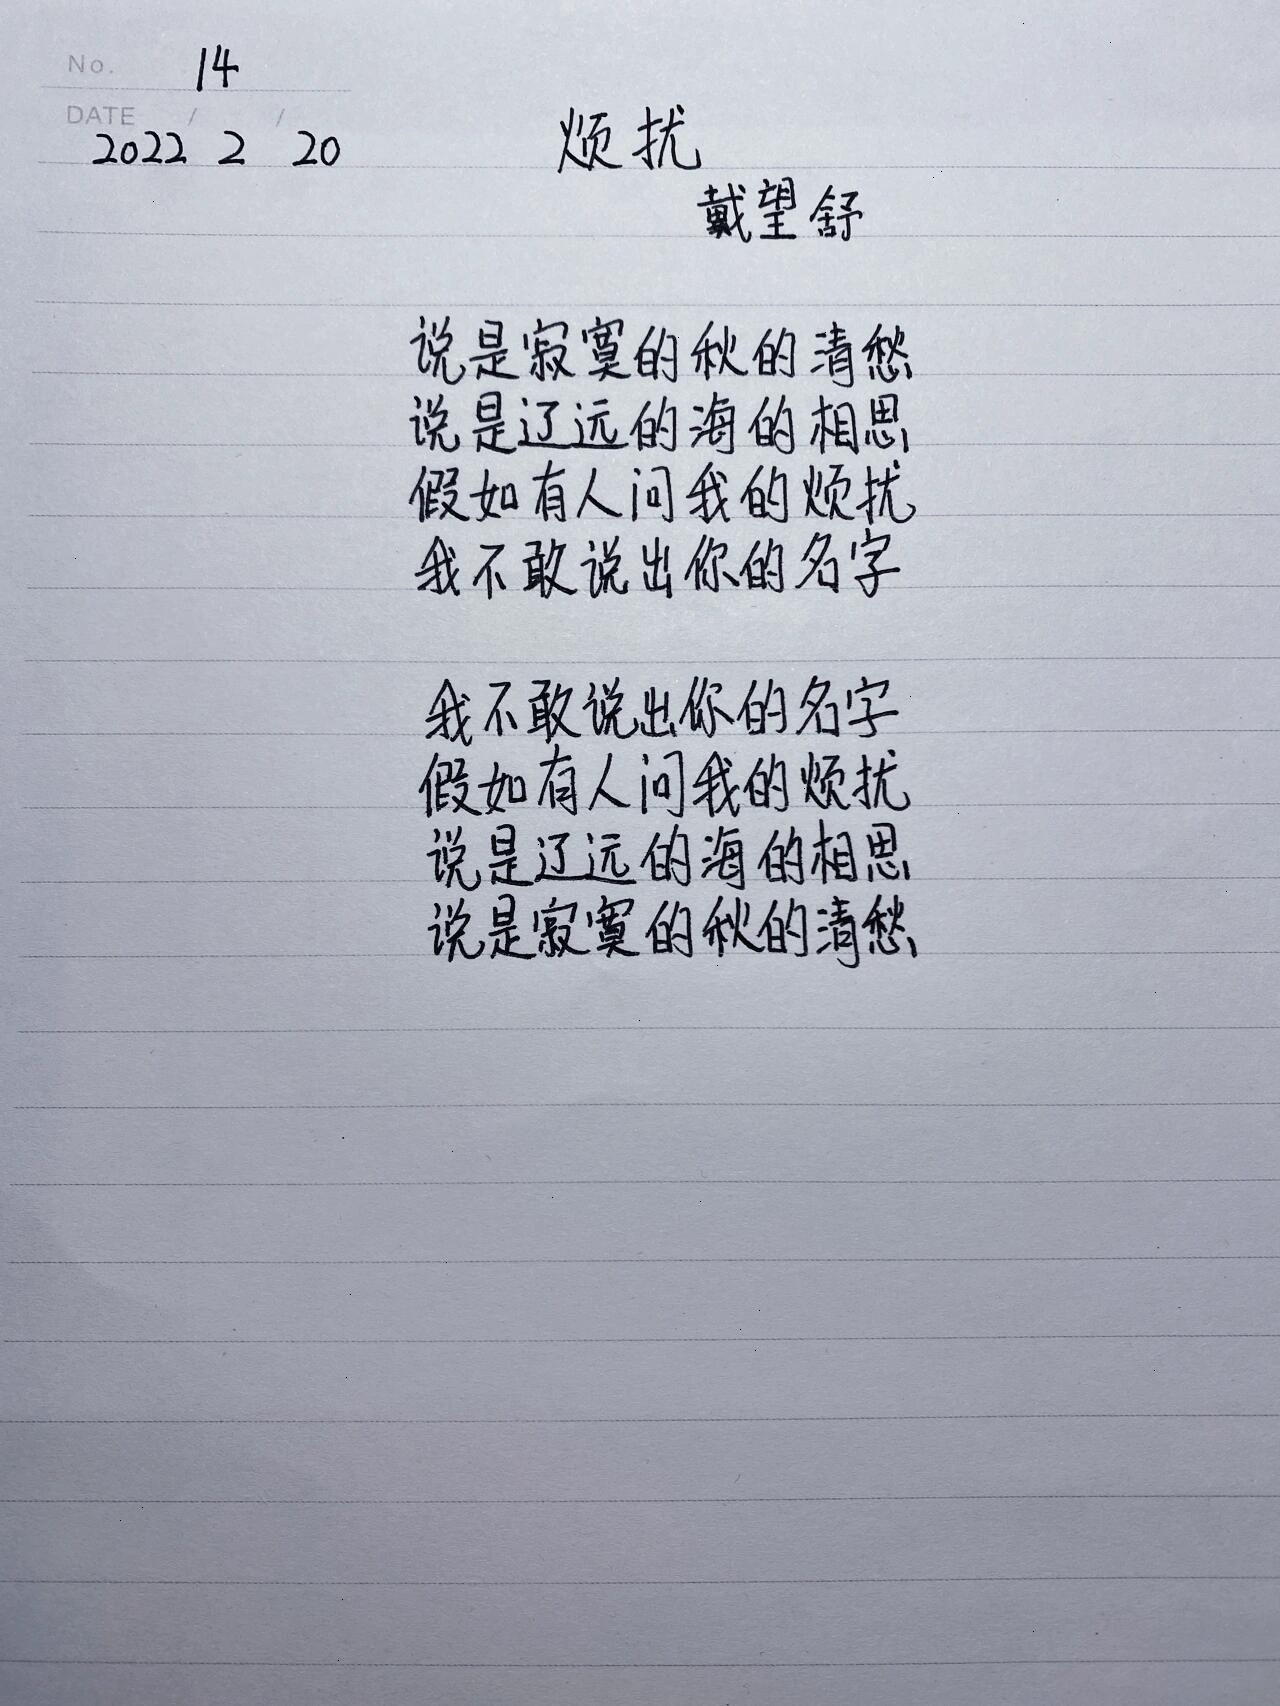 No. 14
DATE / /
2022 2 20
烦扰
戴望舒
说是寂寞的秋的清愁
说是辽远的海的相思
假如有人问我的烦扰
我不敢说出你的名字
我不敢说出你的名字
假如有人问我的烦扰
说是辽远的海的相思
说是寂寞的秋的清愁